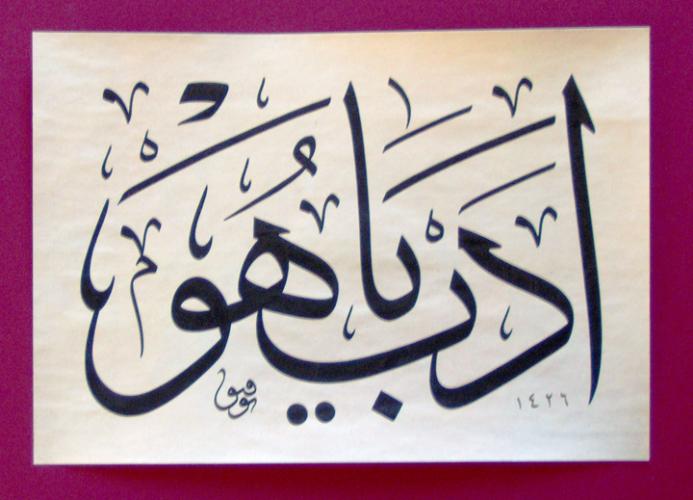 ادب يا هو
١٤٢٦